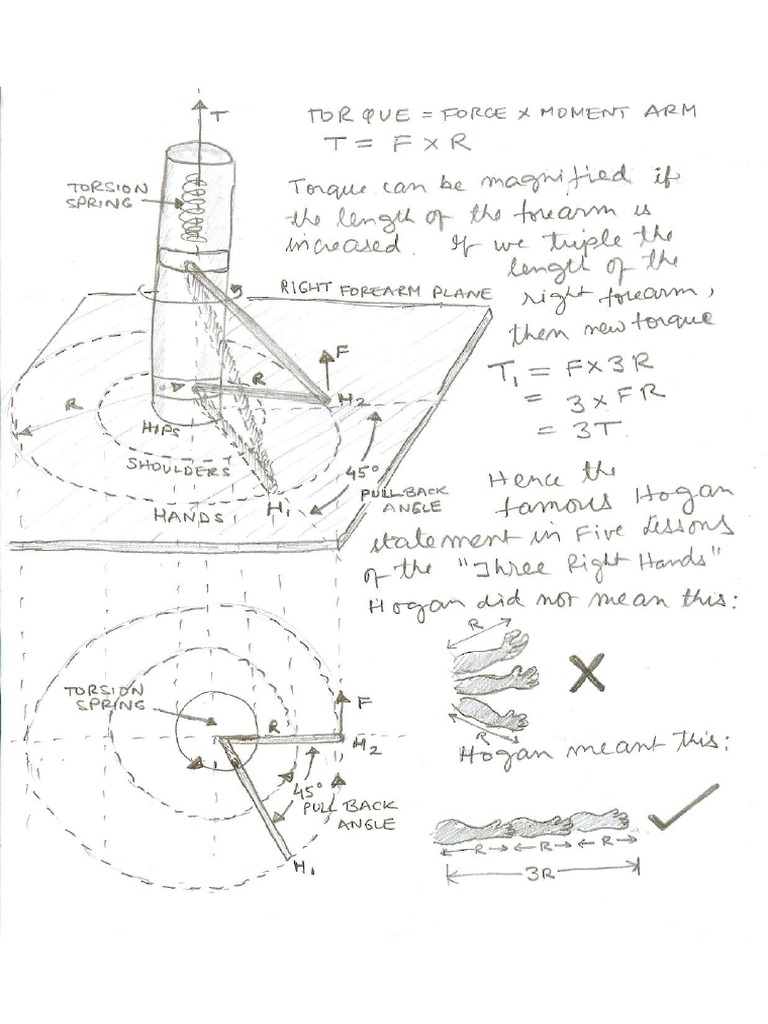 T
TORQUE = FORCE × MOMENT ARM
T = F × R
TORSION
SPRING
Torque can be magnified if
the length of the forearm is
increased. If we triple the
length of the
right forearm,
then new torque
RIGHT FOREARM PLANE
T₁ = F × 3R
= 3 × FR
= 3T.
F
R
H₂
R
HIPS
SHOULDERS
HANDS
H₁
45°
PULL BACK
ANGLE
Hence the
famous Hogan
statement in Five Lessons
of the "Three Right Hands"
Hogan did not mean this:
R
X
R
Hogan meant this:
TORSION
SPRING
F
R
H₂
45°
PULL BACK
ANGLE
H₁
R R R
3R